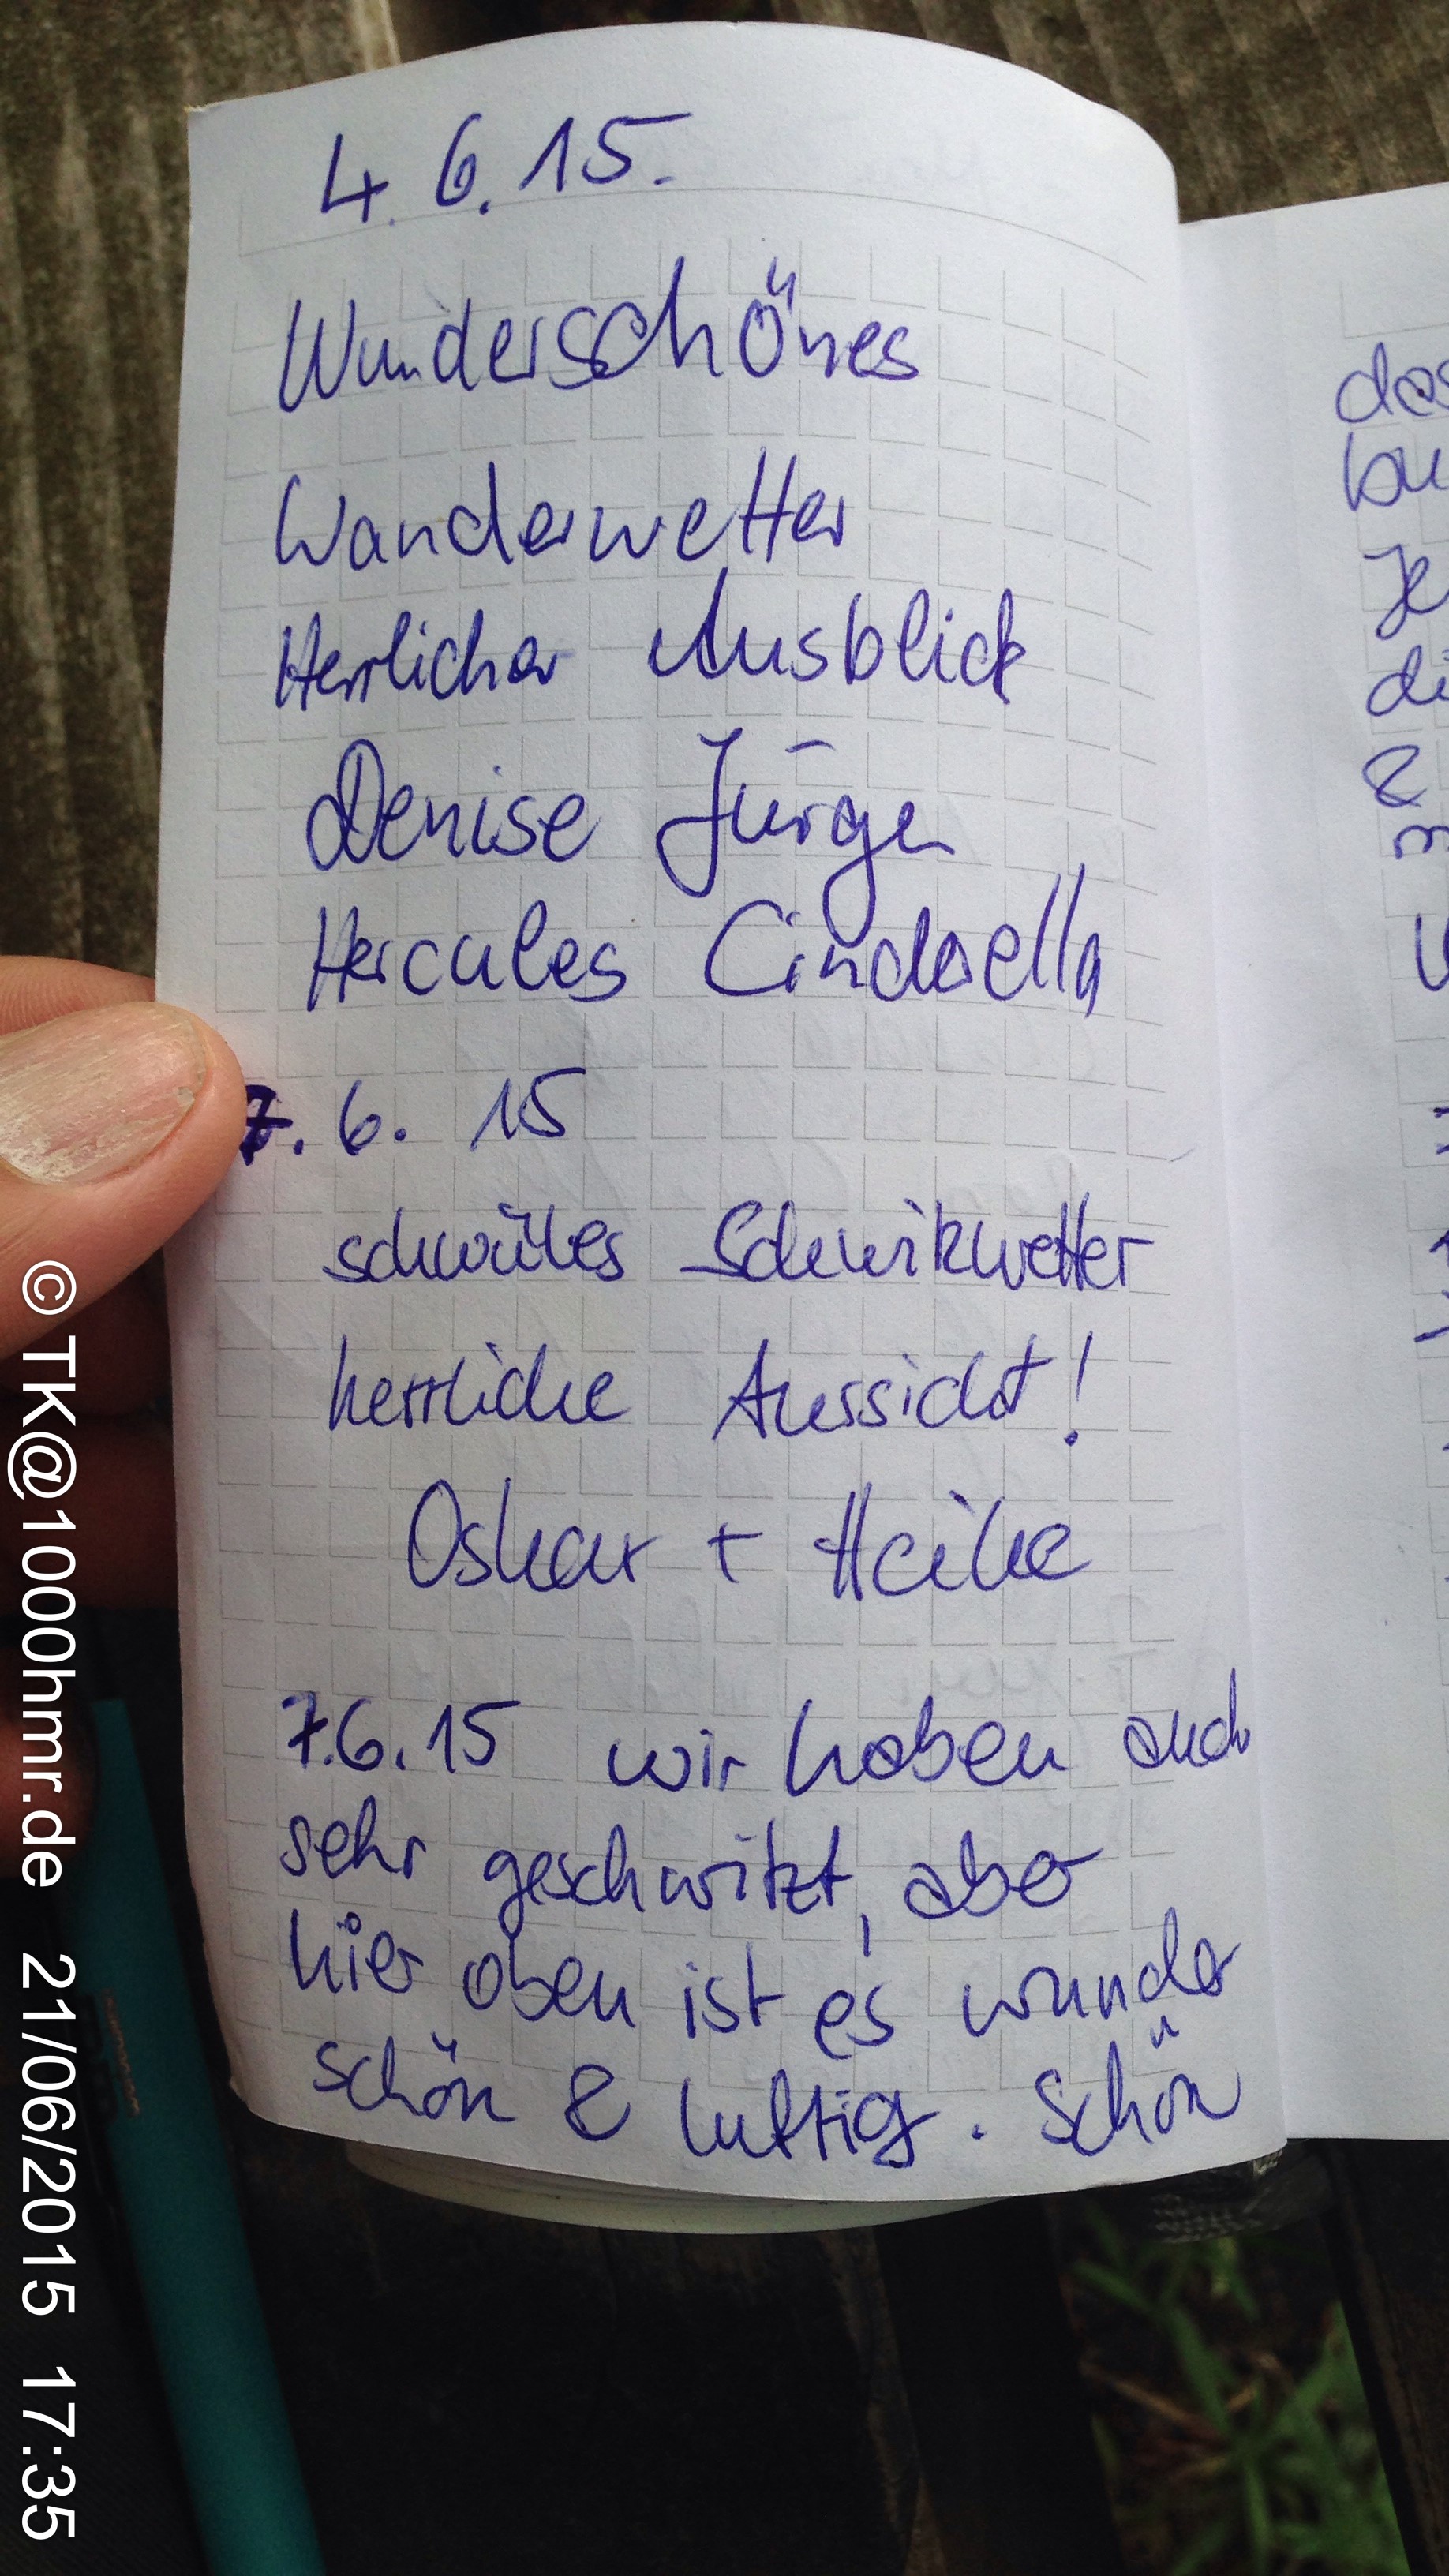 4. 6. 15.
Wunderschönes
Wanderwetter
Herrlicher Ausblick
Denise Jürgen
Hercules Cinderella
7. 6. 15
schwüles Schwitzwetter
herrliche Aussicht!
Oskar + Heike
7.6.15 wir haben auch
sehr geschwitzt, aber
hier oben ist es wunder
schön & luftig. Schön
das
Je
di
&
© TK@1000hmr.de 21/06/2015 17:35